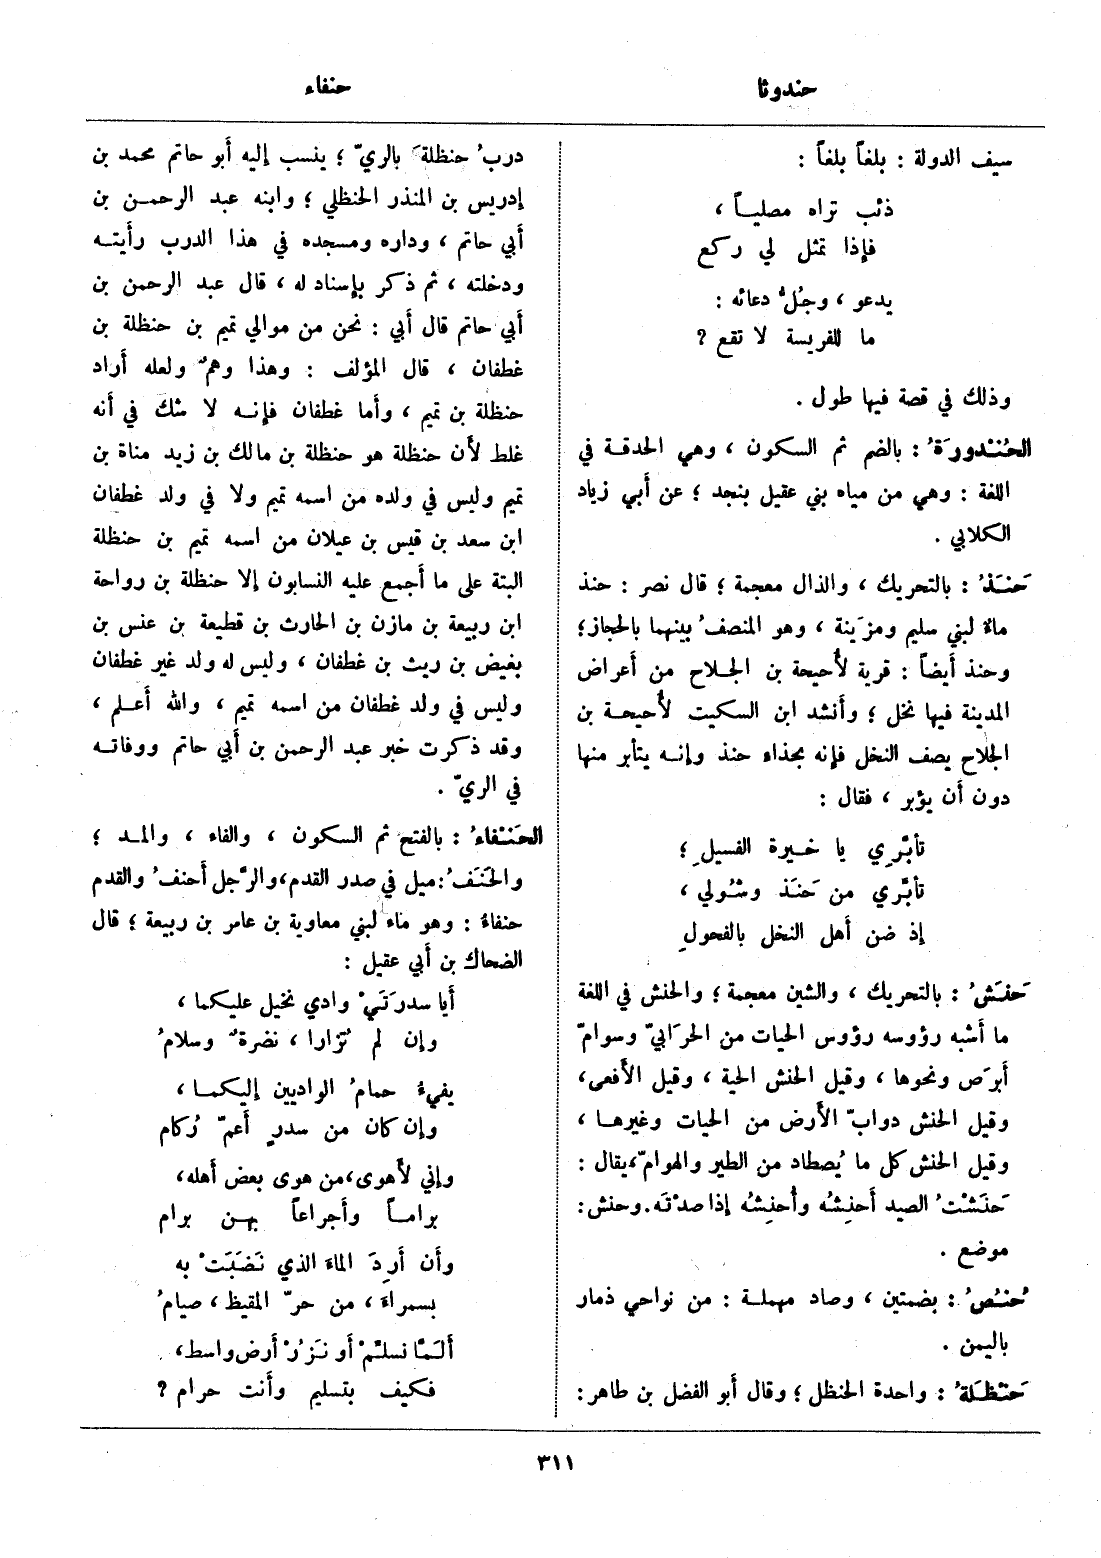 حندوثا
حنفاء
سيف الدولة : بلغاً بلغاً :
ذئب تراه مصلياً ،
فإذا تمثل لي ركع
يدعو ، وجُلّ دعائه :
ما للفريسة لا تقع ؟
وذلك في قصة فيها طول .
الحُنْدورَة : بالضم ثم السكون ، وهي الحدقة في
اللغة : وهي من مياه بني عقيل بنجد ؛ عن أبي زياد
الكلابي .
حَنَذُ : بالتحريك ، والذال معجمة ؛ قال نصر : حنذ
ماءٌ لبني سليم ومزَينة ، وهو المنصفُ بينهما بالحجاز؛
وحنذ أيضاً : قرية لأحيحة بن الجلاح من أعراض
المدينة فيها نخل ؛ وأنشد ابن السكيت لأحيحة بن
الجلاح يصف النخل فإنه بحذاء حنذ وإنه يتأبر منها
دون أن يؤبر ، فقال :
تأبّرِي يا خيرة الفسيلِ ؛
تأبّرِي من حَنَذ وشُولي ،
إذ ضن أهل النخل بالفحولِ
حَنَشُ : بالتحريك ، والشين معجمة ؛ والحنش في اللغة
ما أشبه رؤوسه رؤوس الحيات من الحرَابيّ وسوامّ
أبرَص ونحوها ، وقيل الحنش الحية ، وقيل الأفعى،
وقيل الحنش دوابّ الأرض من الحيات وغيرها ،
وقيل الحنش كل ما يُصطاد من الطير والهوامّ،يقال :
حَنَشْتُ الصيد أحنِشُه وأحنِشُه إذا صدْتَه.وحنش:
موضع .
حُنُصُ : بضمتين ، وصاد مهملة : من نواحي ذمار
باليمن .
حَنْظَلَة : واحدة الحنظل ؛ وقال أبو الفضل بن طاهر:
دربُ حنظلةَ بالريّ ؛ ينسب إليه أبو حاتم محمد بن
إدريس بن المنذر الحنظلي ؛ وابنه عبد الرحمن بن
أبي حاتم ، وداره ومسجده في هذا الدرب رأيته
ودخلته ، ثم ذكر بإسناد له ، قال عبد الرحمن بن
أبي حاتم قال أبي : نحن من موالي تميم بن حنظلة بن
غطفان ، قال المؤلف : وهذا وهمٌ ولعله أراد
حنظلة بن تميم ، وأما غطفان فإنه لا شك في أنه
غلط لأن حنظلة هو حنظلة بن مالك بن زيد مناة بن
تميم وليس في ولده من اسمه تميم ولا في ولد غطفان
ابن سعد بن قيس بن عيلان من اسمه تميم بن حنظلة
البتة على ما أجمع عليه النسابون إلا حنظلة بن رواحة
ابن ربيعة بن مازن بن الحارث بن قطيعة بن عنس بن
بغيض بن ريث بن غطفان ، وليس له ولد غير غطفان
وليس في ولد غطفان من اسمه تميم ، والله أعلم ،
وقد ذكرت خبر عبد الرحمن بن أبي حاتم ووفاته
في الريّ .
الحَنْفاءُ : بالفتح ثم السكون ، والفاء ، والمد ؛
والحَنَفُ:ميل في صدر القدم،والرّجل أحنفُ والقدم
حنفاءُ : وهو ماء لبني معاوية بن عامر بن ربيعة ؛ قال
الضحاك بن أبي عقيل :
أيا سدرَتَيْ وادي نخيل عليكما ،
وإن لم تُزارا ، نضرةٌ وسلامُ
يفيءُ حمامُ الواديين إليكما ،
وإن كان من سدرٍ أعمّ رُكام
وإني لأهوى،من هوى بعض أهله،
براماً وأجراعاً بهن برام
وأن أرِدَ الماءَ الذي نَضَبَتْ به
بسمراءَ ، من حرّ المقيظ ، صيامُ
ألَمّا نسلّمْ أو نَزُرْ أرض واسط،
فكيف بتسليم وأنت حرام ؟
٣١١